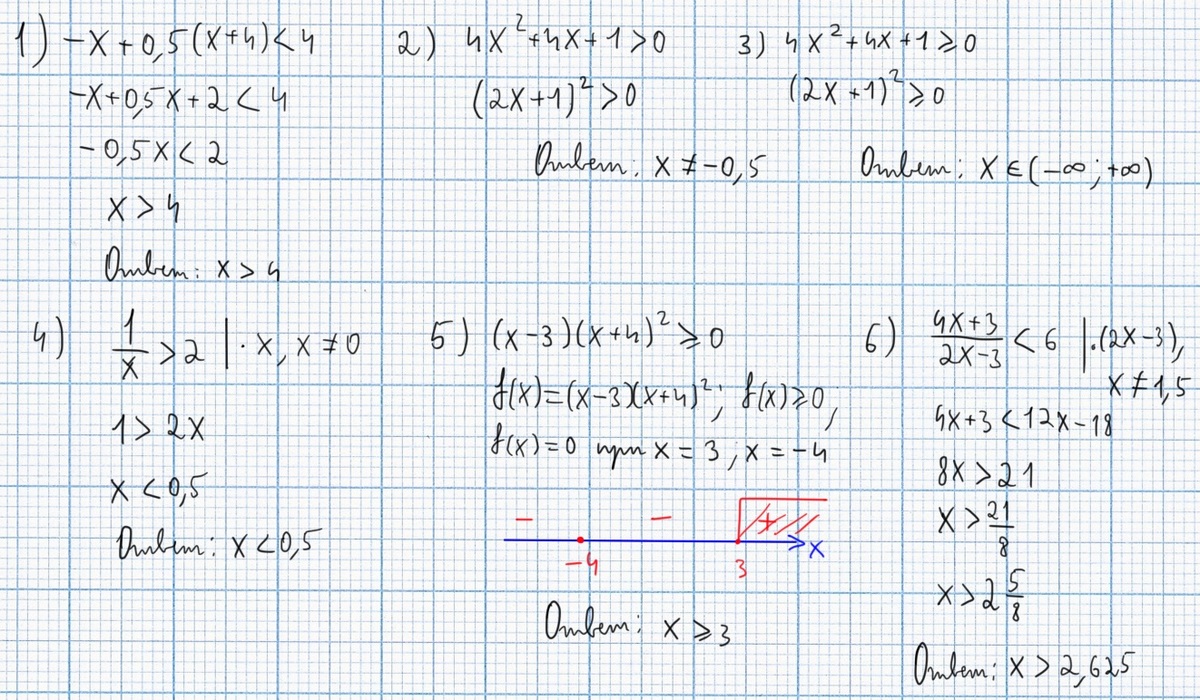 1) -x+0,5(x+4)<4
-x+0,5x+2<4
-0,5x<2
x>4
Ответ: x>4
2) 4x²+4x+1>0
(2x+1)²>0
Ответ: x≠-0,5
3) 4x²+4x+1⩾0
(2x+1)²⩾0
Ответ: x∈(-∞;+∞)
4) 1/x>2 |·x, x≠0
1>2x
x<0,5
Ответ: x<0,5
5) (x-3)(x+4)²⩾0
f(x)=(x-3)(x+4)²; f(x)⩾0,
f(x)=0 при x=3; x=-4
- - +
-4 3 x
Ответ: x⩾3
6) (4x+3)/(2x-3)<6 |·(2x-3),
x≠1,5
4x+3<12x-18
8x>21
x>21/8
x>2 5/8
Ответ: x>2,625